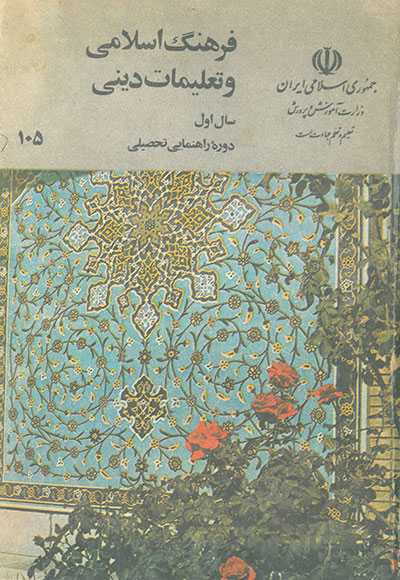 جمهوری اسلامی ایران
وزارت آموزش و پرورش
تعلیم و تعلم عبادت است
فرهنگ اسلامی
و تعلیمات دینی
سال اول
دورهٔ راهنمایی تحصیلی
۱۰۵